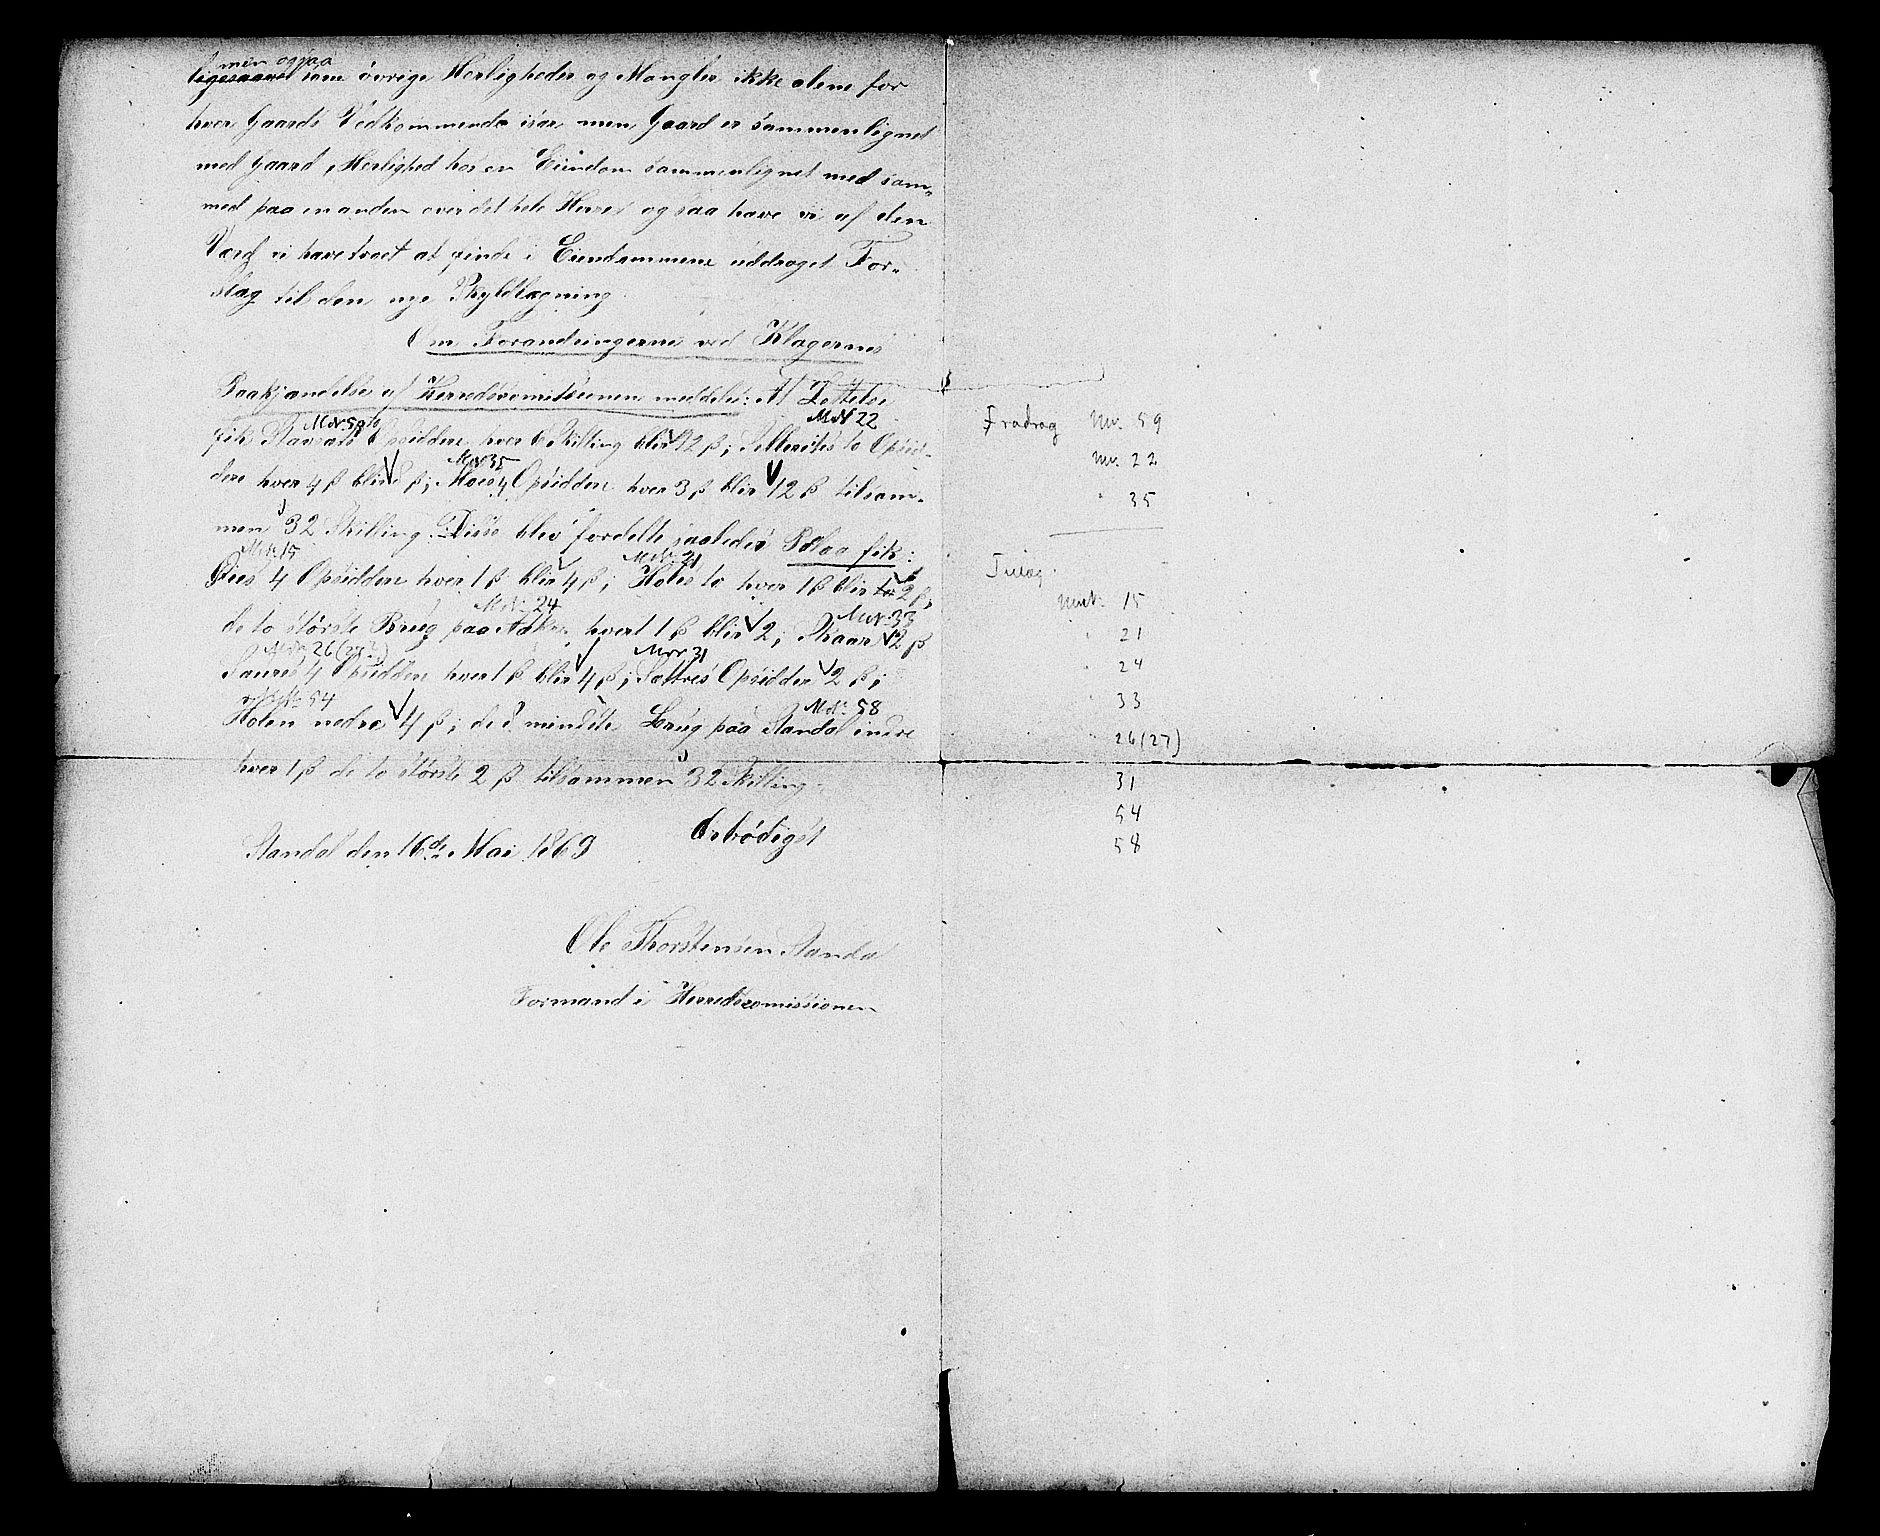 men ogsaa
ligesaavel som övrige Herligheder og Mangler ikke alene for
hver Gaards Vedkommende især men Gaard er sammenlignet
med Gaard, Herlighed hos en Eiendom sammenlignet med sam„
med paa en anden over det hele Herred og saa have vi af den
Værd vi have troet at finde i Eiendommene uddraget For„
slag til den nye Skyldlægning
Om Forandringerne ved Klagernes
Paakjændelse af Herredscomissionen meddeles: Af Lettelse
Mn 59 Mn 22
fik Stavsæts to Opsiddere hver 6 Skilling blir 12 ß; to Opsid„
Mn 35
dere hver 4 ß blir 8 ß; Moes 4 Opsiddere hver 3 ß blir 12 ß tilsam„
men 32 Skilling. Disse blev fordelte saaledes Paalæg fik:
Mn 15 Mn 21
4 Opsiddere hver 1 ß blir 4 ß; Holes to hver 1 ß blir to 2 ß;
Mn 24 Mn 33
de to störste Brug paa hvert 1 ß blir 2; Skaar 12 ß
Mn 26 (27?) Mn 31
Saures 4 Opsiddere hver 1 ß blir 4 ß; Sættres Opsidder 2 ß;
Mn 54 Mn 58
Holen nedre 4 ß; de 2 mindste Brug paa Standal indre
hver 1 ß de to störste 2 ß tilsammen 32 Skilling.
Standal den 16de Mai 1869 Ærbödigst
Ole Thorstensen Standal
Formand i Herredscomissionen
Fradrag Mn. 59
Mn. 22
" 35
Tillæg
Mn. 15
" 21
" 24
" 33
" 26 (27)
31
54
58